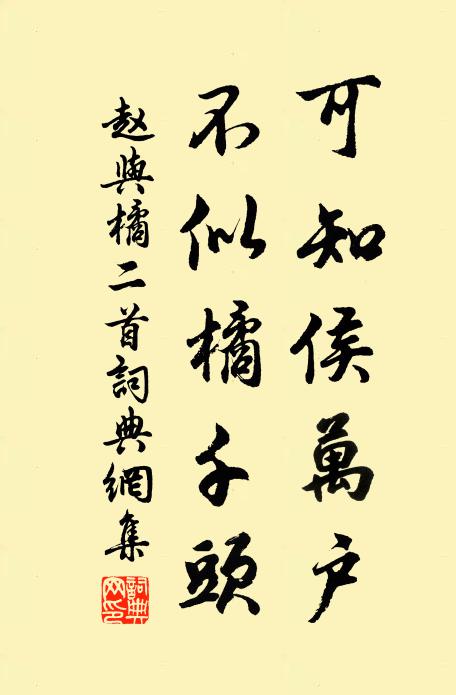 可知侯萬户
不似橘千頭
赵與橘二首詞典網集
詞典网印